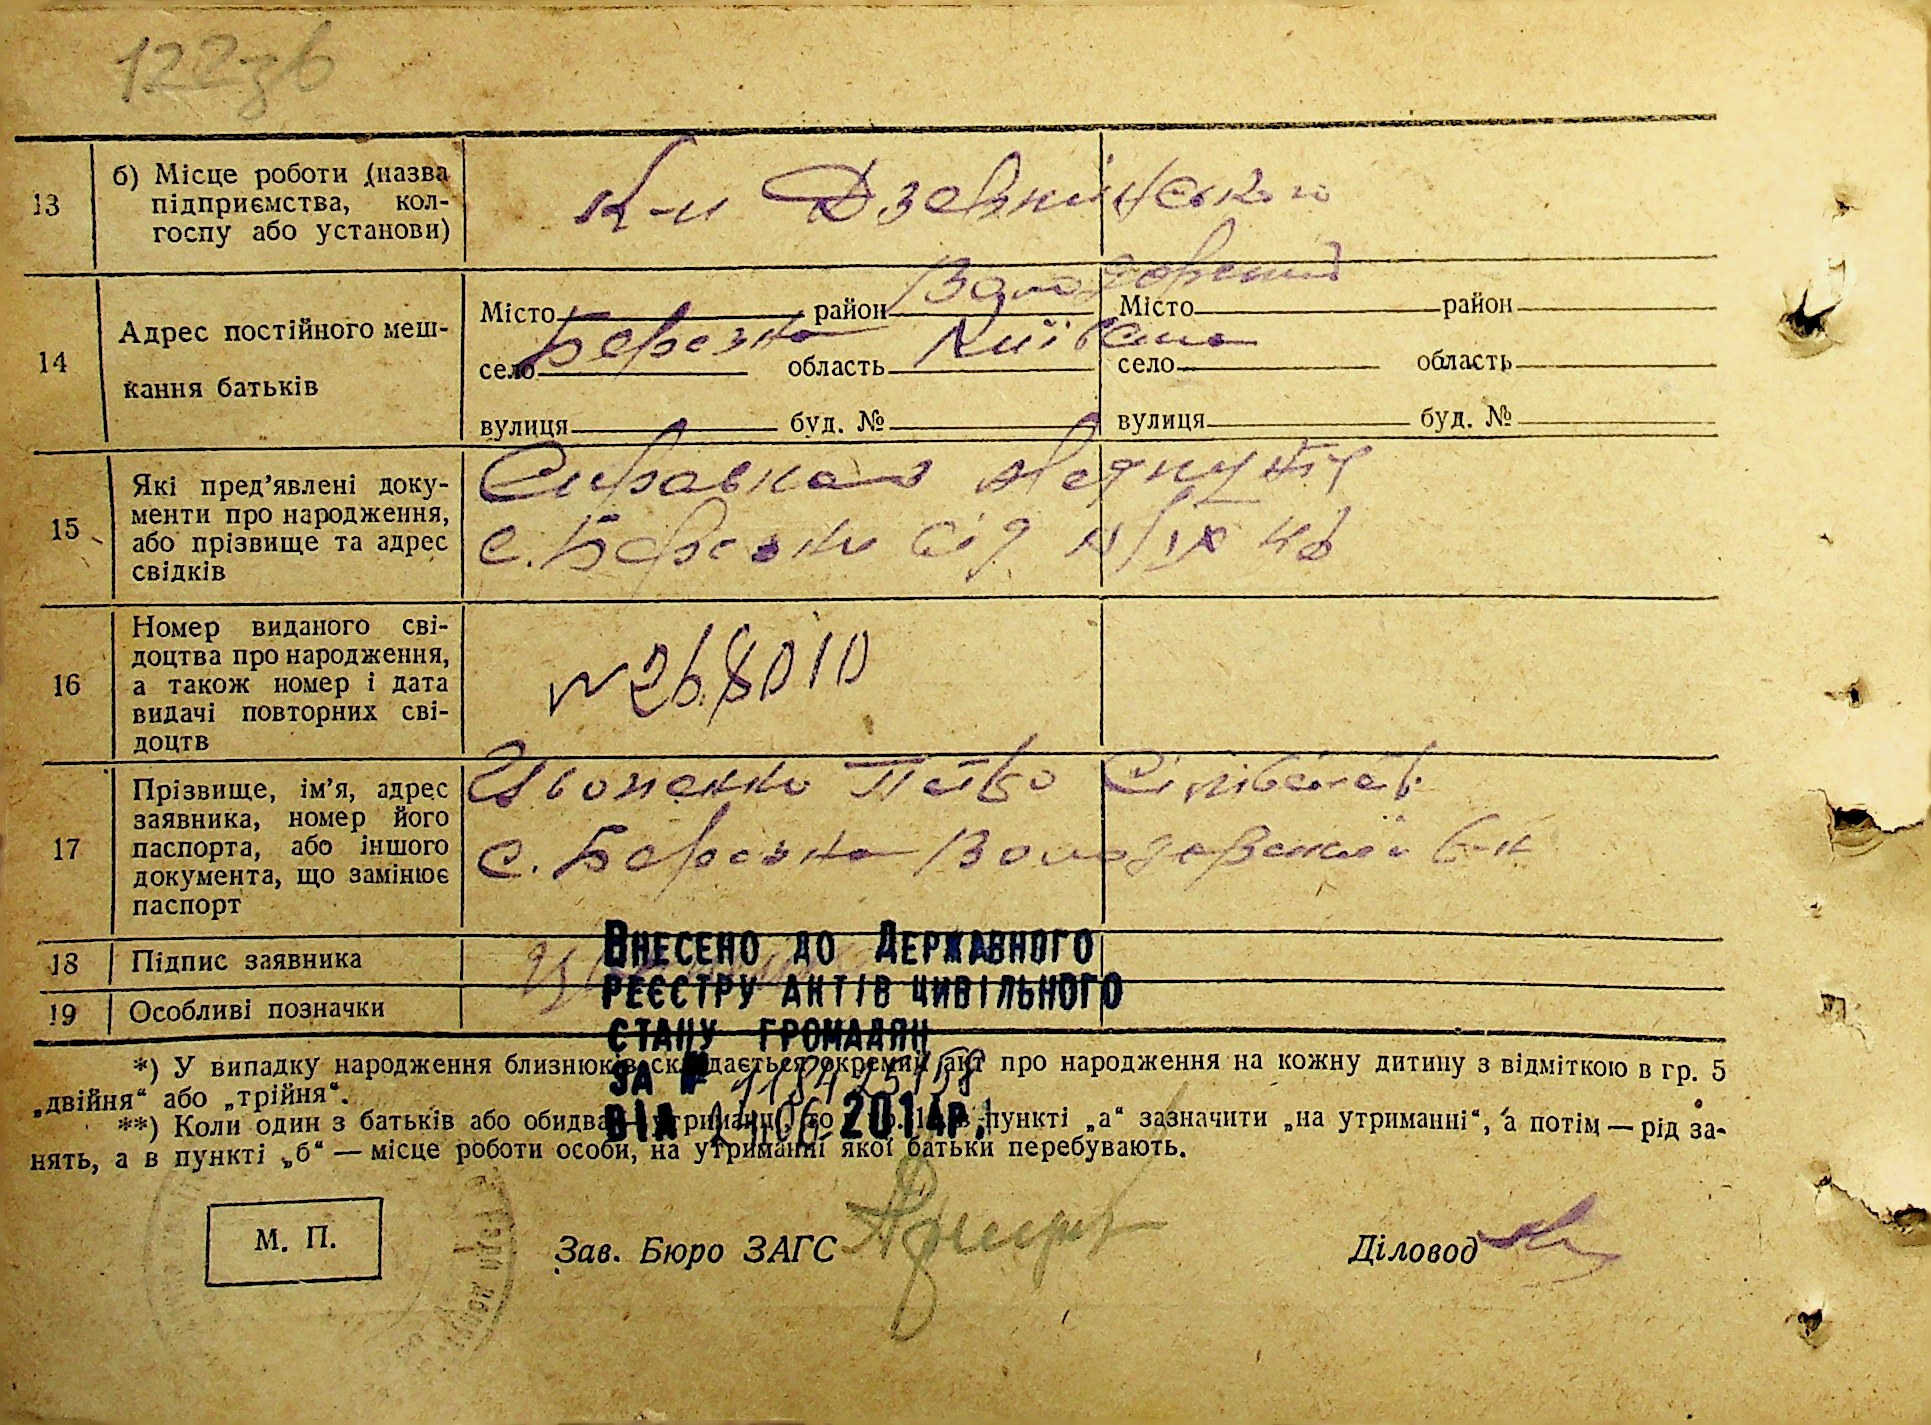 122зв
13
б) Місце роботи (назва
підприємства, кол-
госпу або установи)
К-п Дзержинського
14
Адрес постійного меш-
кання батьків
Володарський
Місто район Місто район
Березна Київська
село область село область
вулиця буд. № вулиця буд. №
15
Які пред’явлені доку-
менти про народження,
або прізвище та адрес
свідків
Справка з медпункту
с. Березни від
16
Номер виданого сві-
доцтва про народження,
а також номер і дата
видачі повторних сві-
доцтв
№ 268010
17
Прізвище, ім’я, адрес
заявника, номер його
паспорта, або іншого
документа, що замінює
паспорт
с. Березна Володарський р-н
18
Підпис заявника
19
Особливі позначки
Внесено до Державного
реєстру актів цивільного
стану громадян
за №
від 2014р.
*) У випадку народження близнюків складається окремий акт про народження на кожну дитину з відміткою в гр. 5
„двійня“ або „трійня“.
**) Коли один з батьків або обидва утриманці, то в пункті „а“ зазначити „на утриманні“, а потім — рід за-
нять, а в пункті „б“ — місце роботи особи, на утриманні якої батьки перебувають.
М. П.
Зав. Бюро ЗАГС
Діловод